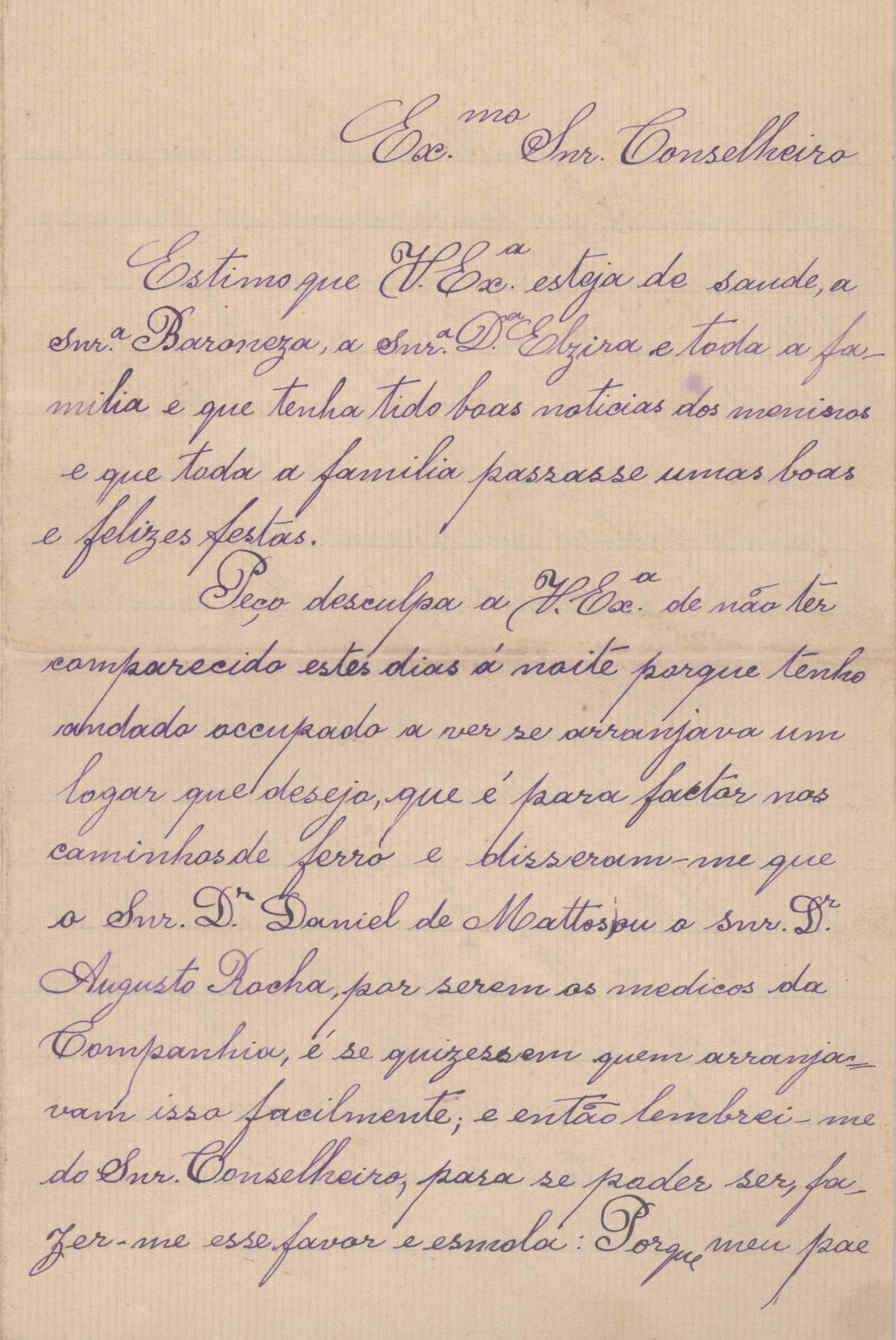 Ex.mo Snr. Conselheiro
Estimo que V. Ex.a esteja de saude, a
Snr.a Baroneza, a Snr.a D.a Elzira e toda a fa-
milia e que tenha tido boas noticias dos meninos
e que toda a familia passasse umas boas
e felizes festas.
Peço desculpa a V. Ex.a de não ter
comparecido estes dias á noite porque tenho
andado occupado a ver se arranjava um
logar que desejo, que é para factor nos
caminhos de ferro e disseram-me que
o Snr. D.r Daniel de Mattos ou o snr. D.r
Augusto Rocha, por serem os medicos da
Companhia, é se quizessem quem arranja=
vam isso facilmente; e então lembrei-me
do Snr. Conselheiro, para se poder ser, fa-
zer-me esse favor e esmola: Porque meu pae